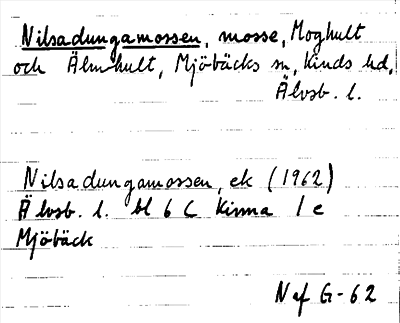 Nilsadungamossen, mosse, Moghult
och Älmhult, Mjöbäcks sn, Kinds hd,
Älvsb. l.
Nilsadungamossen, ek (1962)
Älvsb. l. bl 6 C Kinna 1 e
Mjöbäck
Naf G-62